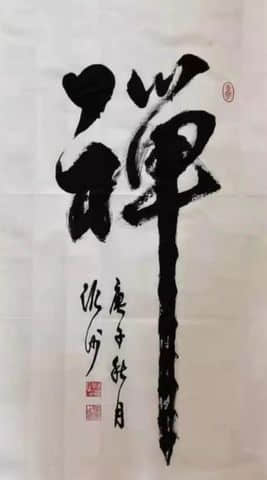 禅
庚子秋月